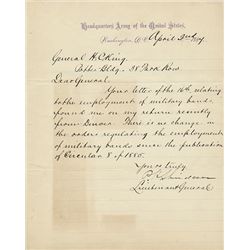 Headquarters Army of the United States,
Washington, D.C. April 2nd
General H.C. King
Potter Bldg. 38 Park Row
Dear General:
Your letter of the 16th relating
to the employment of military bands,
found me on my return recently
from Denver. There is no change in
the orders regulating the employment
of military bands since the publication
of Circular 8 of 1885.
Yours truly
Lieutenant General